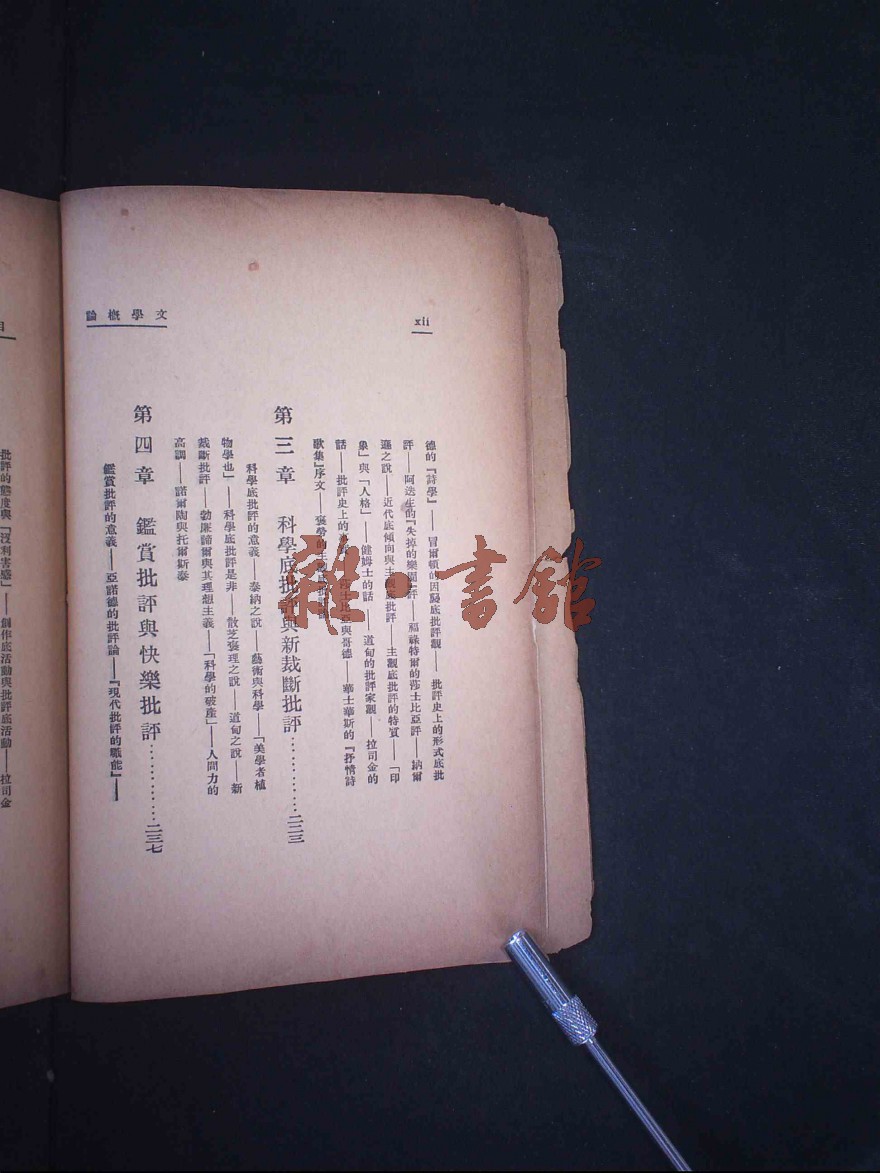 xii
文學概論
德的『詩學』——冒爾頓的因襲底批評觀——批評史上的形式底批
評——阿迭生的『失掉的樂園』評——福祿特爾的莎士比亞評——納爾
遜之說——近代底傾向與主觀底批評——主觀底批評的特質——「印
象」與「人格」——健姆士的話——道甸的批評家觀——拉司金的
話——批評史上的 士比亞與哥德——華士華斯的『抒情詩
歌集』序文——褒勞的 底批
第三章 科學底批評與新裁斷批評…………二二三
科學底批評的意義——泰納之說——藝術與科學——「美學者植
物學也」——科學底批評是非——散芝褒理之說——道甸之說——新
裁斷批評——勃廉諦爾與其理想主義——「科學的破產」——人間力的
高調——諾爾陶與托爾斯泰
第四章 鑑賞批評與快樂批評…………二三七
鑑賞批評的意義——亞諾德的批評論——『現代批評的職能』——
目
批評的態度與「沒利害感」——創作底活動與批評底活動——拉司金
雜·書館